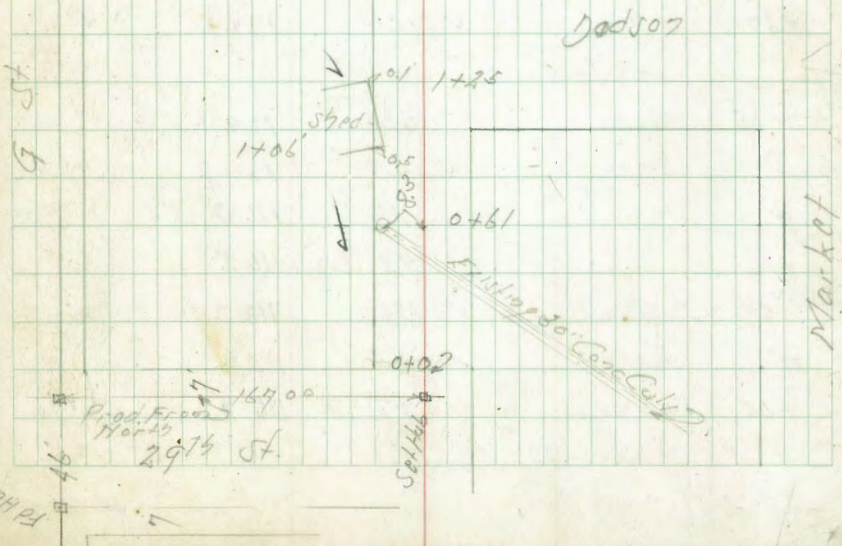 Dodson
G St.
0.1 1+25
shed
1+06
0.5
8.3
0+61
Market
Existing 30" Conc Culv.
0+02
7'
167.00
Prod. From
North
29th St.
Set Hub
46'
7